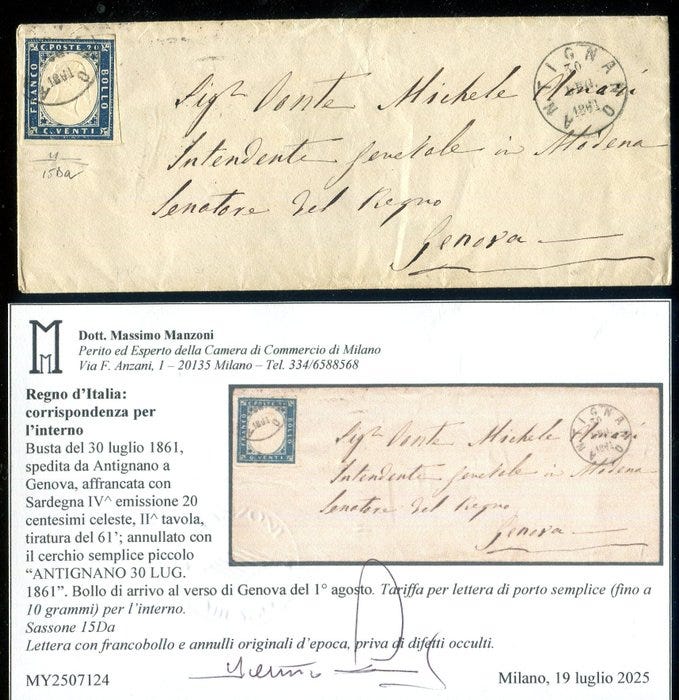 C. POSTE. 20
FRANCO
BOLLO
C. VENTI
ANTIGNANO
1861
Sigr. Conte Michele
Intendente Generale in Modena
Senatore del Regno
Genova
15Da
M
Dott. Massimo Manzoni
Perito ed Esperto della Camera di Commercio di Milano
Via F. Anzani, 1 – 20135 Milano – Tel. 334/6588568
Regno d’Italia:
corrispondenza per
l’interno
Busta del 30 luglio 1861,
spedita da Antignano a
Genova, affrancata con
Sardegna IV^ emissione 20
centesimi celeste, II^ tavola,
tiratura del 61’; annullato con
il cerchio semplice piccolo
“ANTIGNANO 30 LUG.
1861”. Bollo di arrivo al verso di Genova del 1° agosto. Tariffa per lettera di porto semplice (fino a
10 grammi) per l’interno.
Sassone 15Da
Lettera con francobollo e annulli originali d’epoca, priva di difetti occulti.
MY2507124
Milano, 19 luglio 2025
C. POSTE. 20
FRANCO
BOLLO
C. VENTI
ANTIGNANO
Sigr. Conte Michele
Intendente Generale in Modena
Senatore del Regno
Genova